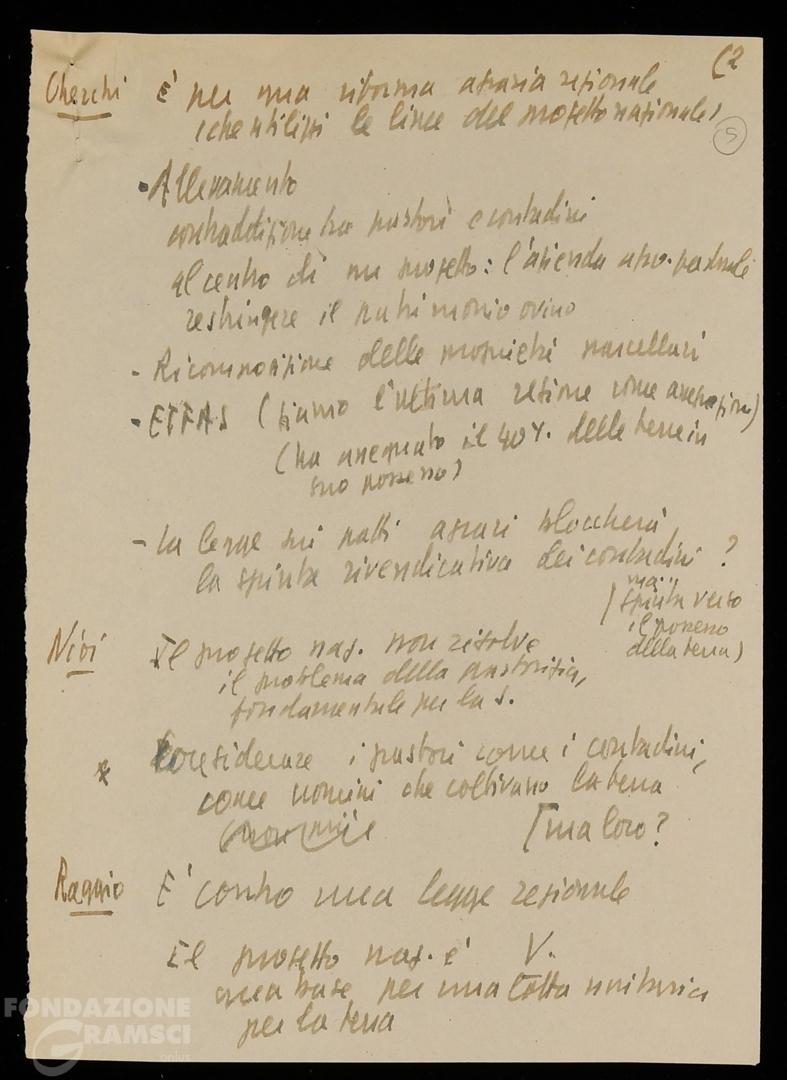 (2
Cherchi È per una riforma agraria regionale
(che utilizzi le linee del progetto nazionale)
5
• Allevamento
contraddizione tra pastori e contadini
al centro di un progetto: l'azienda agro-pastorale
restringere il patrimonio ovino
- Ricomposizione delle proprietà particellari
- ETFAS (siamo l'ultima regione come
(ha assegnato il 40%. delle terre in
suo possesso)
- La legge sui patti agrari bloccherà
la spinta rivendicativa dei contadini ?
ma..
(spinta verso
il possesso
della terra)
Il progetto naz. non risolve
il problema della pastorizia,
fondamentale per la S.
* Considerare i pastori come i contadini,
come uomini che coltivano la terra
[ma loro?
Raggio È contro una legge regionale
Il progetto naz. è V.
una base per una lotta unitaria
per la terra
FONDAZIONE
GRAMSCI
onlus